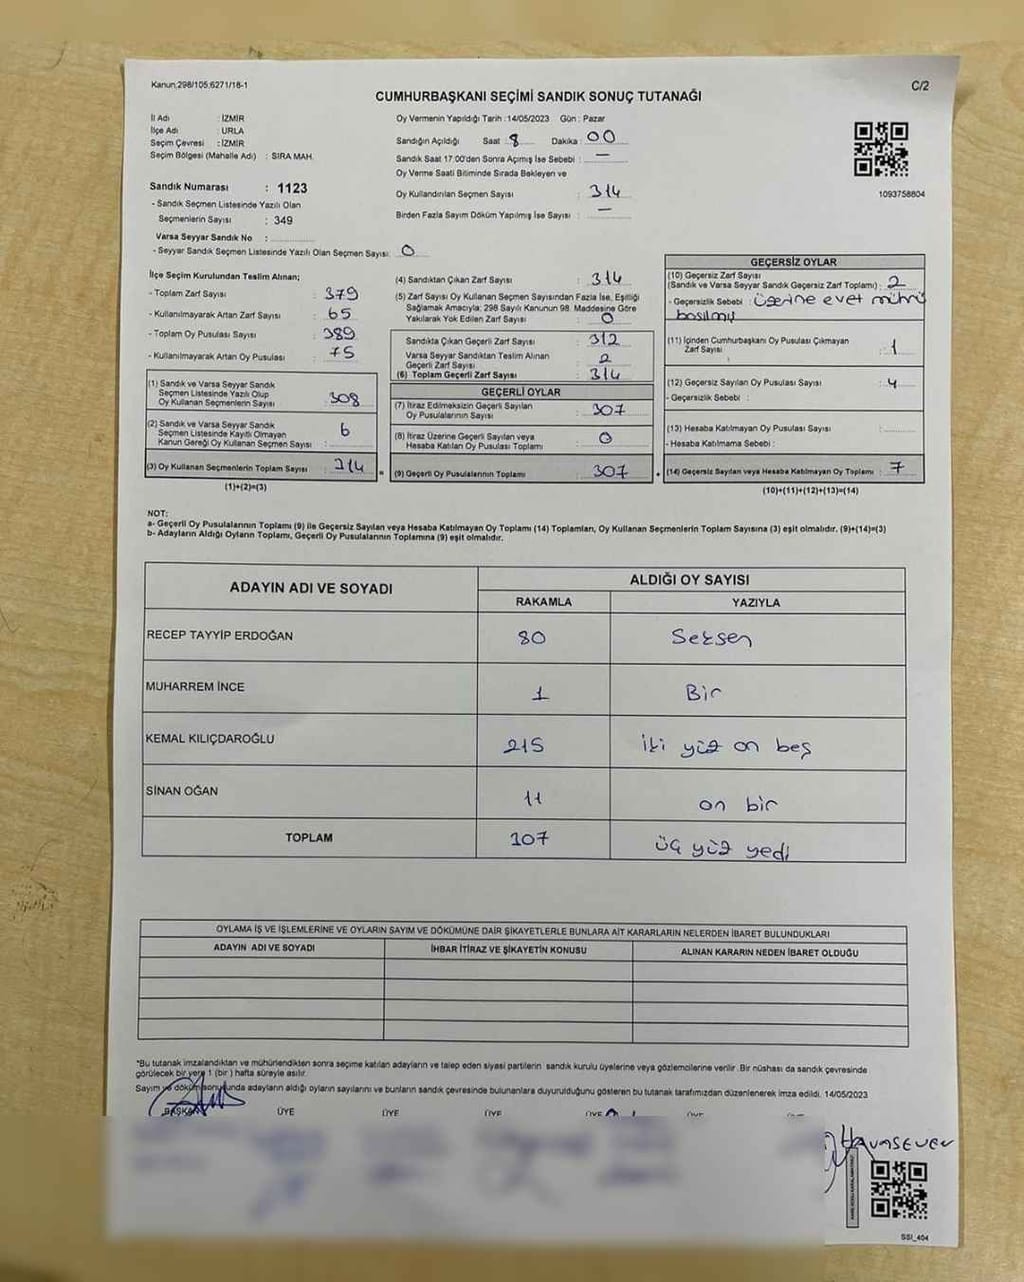 Kanun;298/105;6271/18-1
C/2
CUMHURBAŞKANI SEÇİMİ SANDIK SONUÇ TUTANAĞI
İl Adı : İZMİR
İlçe Adı : URLA
Seçim Çevresi : İZMİR
Seçim Bölgesi (Mahalle Adı) : SIRA MAH.
Sandık Numarası : 1123
- Sandık Seçmen Listesinde Yazılı Olan
Seçmenlerin Sayısı : 349
Varsa Seyyar Sandık No :
- Seyyar Sandık Seçmen Listesinde Yazılı Olan Seçmen Sayısı: 0
Oy Vermenin Yapıldığı Tarih :14/05/2023 Gün : Pazar
Sandığın Açıldığı Saat : 8 Dakika : 00
Sandık Saat 17:00'den Sonra Açılmış İse Sebebi : —
Oy Verme Saati Bitiminde Sırada Bekleyen ve
Oy Kullandırılan Seçmen Sayısı : 314
Birden Fazla Sayım Döküm Yapılmış İse Sayısı : —
1093758804
İlçe Seçim Kurulundan Teslim Alınan;
- Toplam Zarf Sayısı : 379
- Kullanılmayarak Artan Zarf Sayısı : 65
- Toplam Oy Pusulası Sayısı : 389
- Kullanılmayarak Artan Oy Pusulası : 75
(1) Sandık ve Varsa Seyyar Sandık
Seçmen Listesinde Yazılı Olup
Oy Kullanan Seçmenlerin Sayısı : 308
(2) Sandık ve Varsa Seyyar Sandık
Seçmen Listesinde Kayıtlı Olmayan
Kanun Gereği Oy Kullanan Seçmen Sayısı : 6
(3) Oy Kullanan Seçmenlerin Toplam Sayısı : 314
(1)+(2)=(3)
(4) Sandıktan Çıkan Zarf Sayısı : 314
(5) Zarf Sayısı Oy Kullanan Seçmen Sayısından Fazla İse, Eşitliği
Sağlamak Amacıyla; 298 Sayılı Kanunun 98. Maddesine Göre
Yakılarak Yok Edilen Zarf Sayısı : 0
Sandıkta Çıkan Geçerli Zarf Sayısı : 312
Varsa Seyyar Sandıktan Teslim Alınan
Geçerli Zarf Sayısı : 2
(6) Toplam Geçerli Zarf Sayısı : 314
GEÇERLİ OYLAR
(7) İtiraz Edilmeksizin Geçerli Sayılan
Oy Pusulalarının Sayısı : 307
(8) İtiraz Üzerine Geçerli Sayılan veya
Hesaba Katılan Oy Pusulası Toplamı : 0
(9) Geçerli Oy Pusulalarının Toplamı : 307
GEÇERSİZ OYLAR
(10) Geçersiz Zarf Sayısı
(Sandık ve Varsa Seyyar Sandık Geçersiz Zarf Toplamı) : 2
- Geçersizlik Sebebi : üzerine evet mührü
basılmış
(11) İçinden Cumhurbaşkanı Oy Pusulası Çıkmayan
Zarf Sayısı : 1
(12) Geçersiz Sayılan Oy Pusulası Sayısı : 4
- Geçersizlik Sebebi :
(13) Hesaba Katılmayan Oy Pusulası Sayısı :
- Hesaba Katılmama Sebebi :
(14) Geçersiz Sayılan veya Hesaba Katılmayan Oy Toplamı : 7
(10)+(11)+(12)+(13)=(14)
NOT:
a- Geçerli Oy Pusulalarının Toplamı (9) ile Geçersiz Sayılan veya Hesaba Katılmayan Oy Toplamı (14) Toplamları, Oy Kullanan Seçmenlerin Toplam Sayısına (3) eşit olmalıdır. (9)+(14)=(3)
b- Adayların Aldığı Oyların Toplamı, Geçerli Oy Pusulalarının Toplamına (9) eşit olmalıdır.
ADAYIN ADI VE SOYADI
ALDIĞI OY SAYISI
RAKAMLA YAZIYLA
RECEP TAYYİP ERDOĞAN 80 Seksen
MUHARREM İNCE 1 Bir
KEMAL KILIÇDAROĞLU 215 İki yüz on beş
SİNAN OĞAN 11 on bir
TOPLAM 107 üç yüz yedi
OYLAMA İŞ VE İŞLEMLERİNE VE OYLARIN SAYIM VE DÖKÜMÜNE DAİR ŞİKAYETLERLE BUNLARA AİT KARARLARIN NELERDEN İBARET BULUNDUKLARI
ADAYIN ADI VE SOYADI İHBAR İTİRAZ VE ŞİKAYETİN KONUSU ALINAN KARARIN NEDEN İBARET OLDUĞU
*Bu tutanak imzalandıktan ve mühürlendikten sonra seçime katılan adayların ve talep eden siyasi partilerin sandık kurulu üyelerine veya gözlemcilerine verilir. Bir nüshası da sandık çevresinde
görülecek bir yere 1 (bir) hafta süreyle asılır.
Sayım ve döküm sonunda adayların aldığı oyların sayılarını ve bunların sandık çevresinde bulunanlara duyurulduğunu gösteren bu tutanak tarafımızdan düzenlenerek imza edildi. 14/05/2023
BAŞKAN ÜYE ÜYE ÜYE ÜYE ÜYE
SSI_404